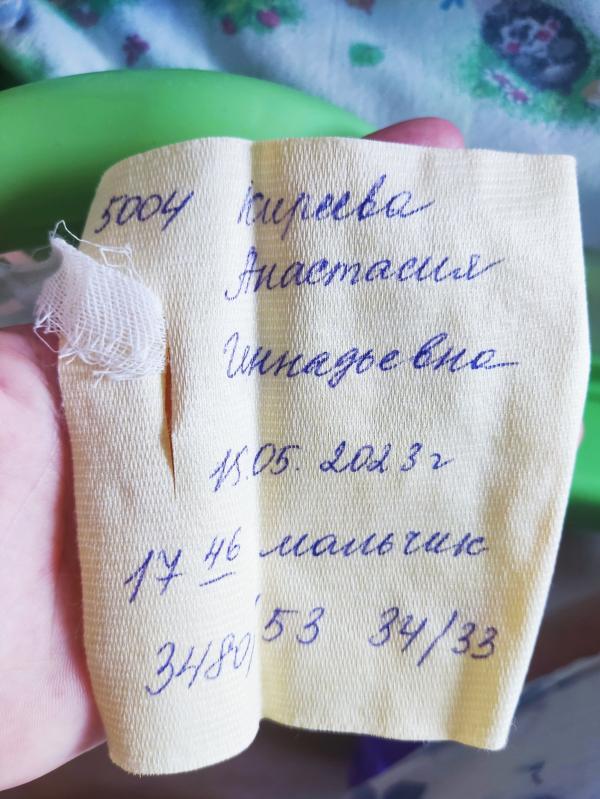 5004 Киреева
Анастасия
Геннадьевна
15.05.2023г
17 46 мальчик
3480/53 34/33